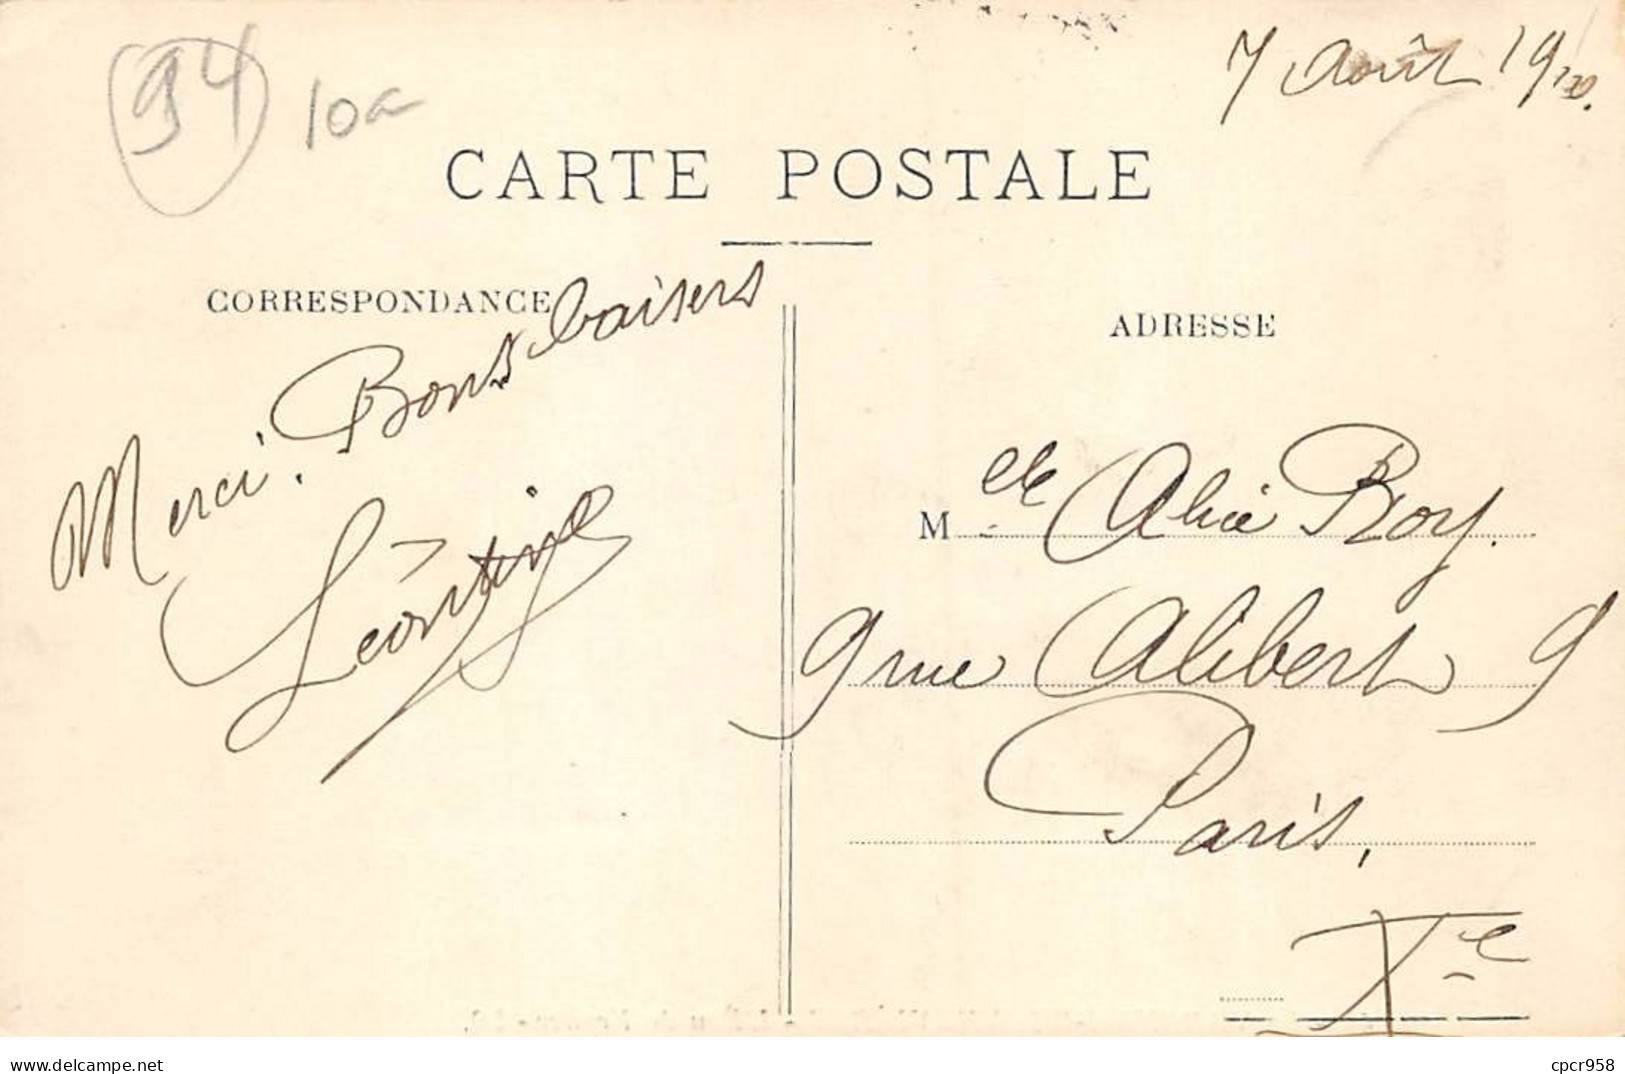 94
10a
7 Août 1910.
CARTE POSTALE
CORRESPONDANCE
Merci. Bons baisers
Léontine
ADRESSE
Melle Alice Roy.
9 rue Alibert 9
Paris,
Xe
www.delcampe.net
cpcr958